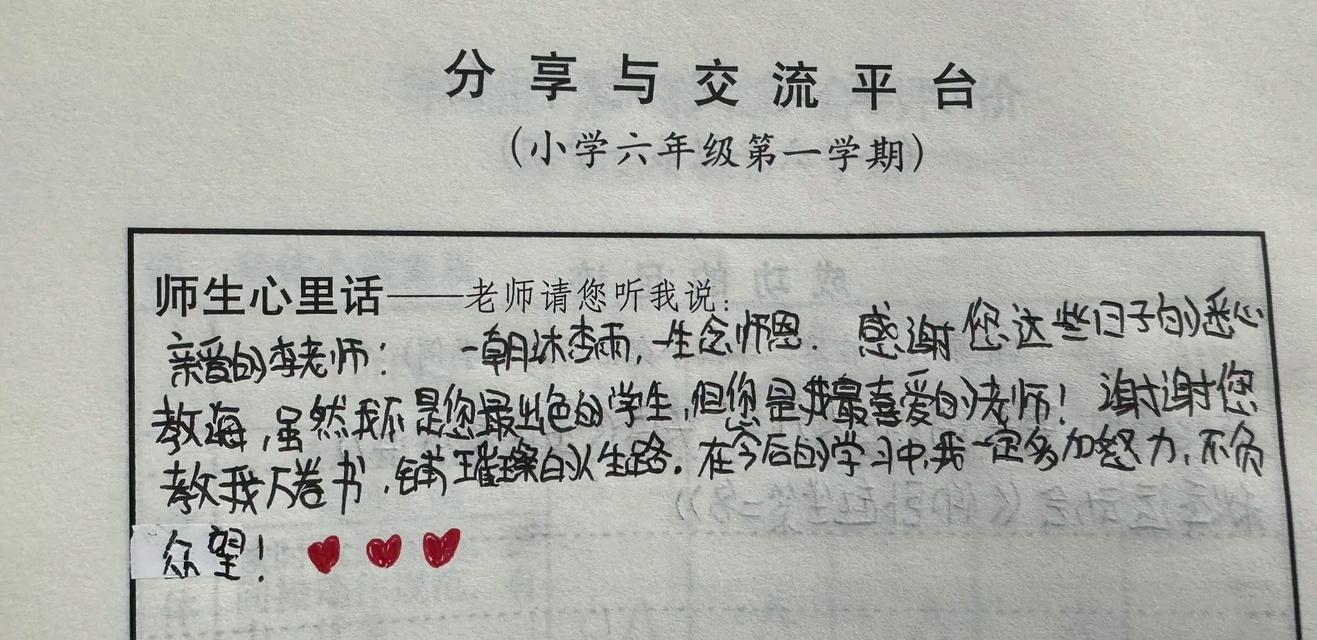 分享与交流平台
(小学六年级第一学期)
师生心里话——老师请您听我说:
亲爱的李老师: 一朝沐杏雨,一生念师恩. 感谢您这些日子的悉心
教海,虽然我不是您最出色的学生,但您是我最喜爱的老师! 谢谢您
教我万卷书,铺璀璨的人生路.在今后的学习中,我一定多加努力,不负
众望!